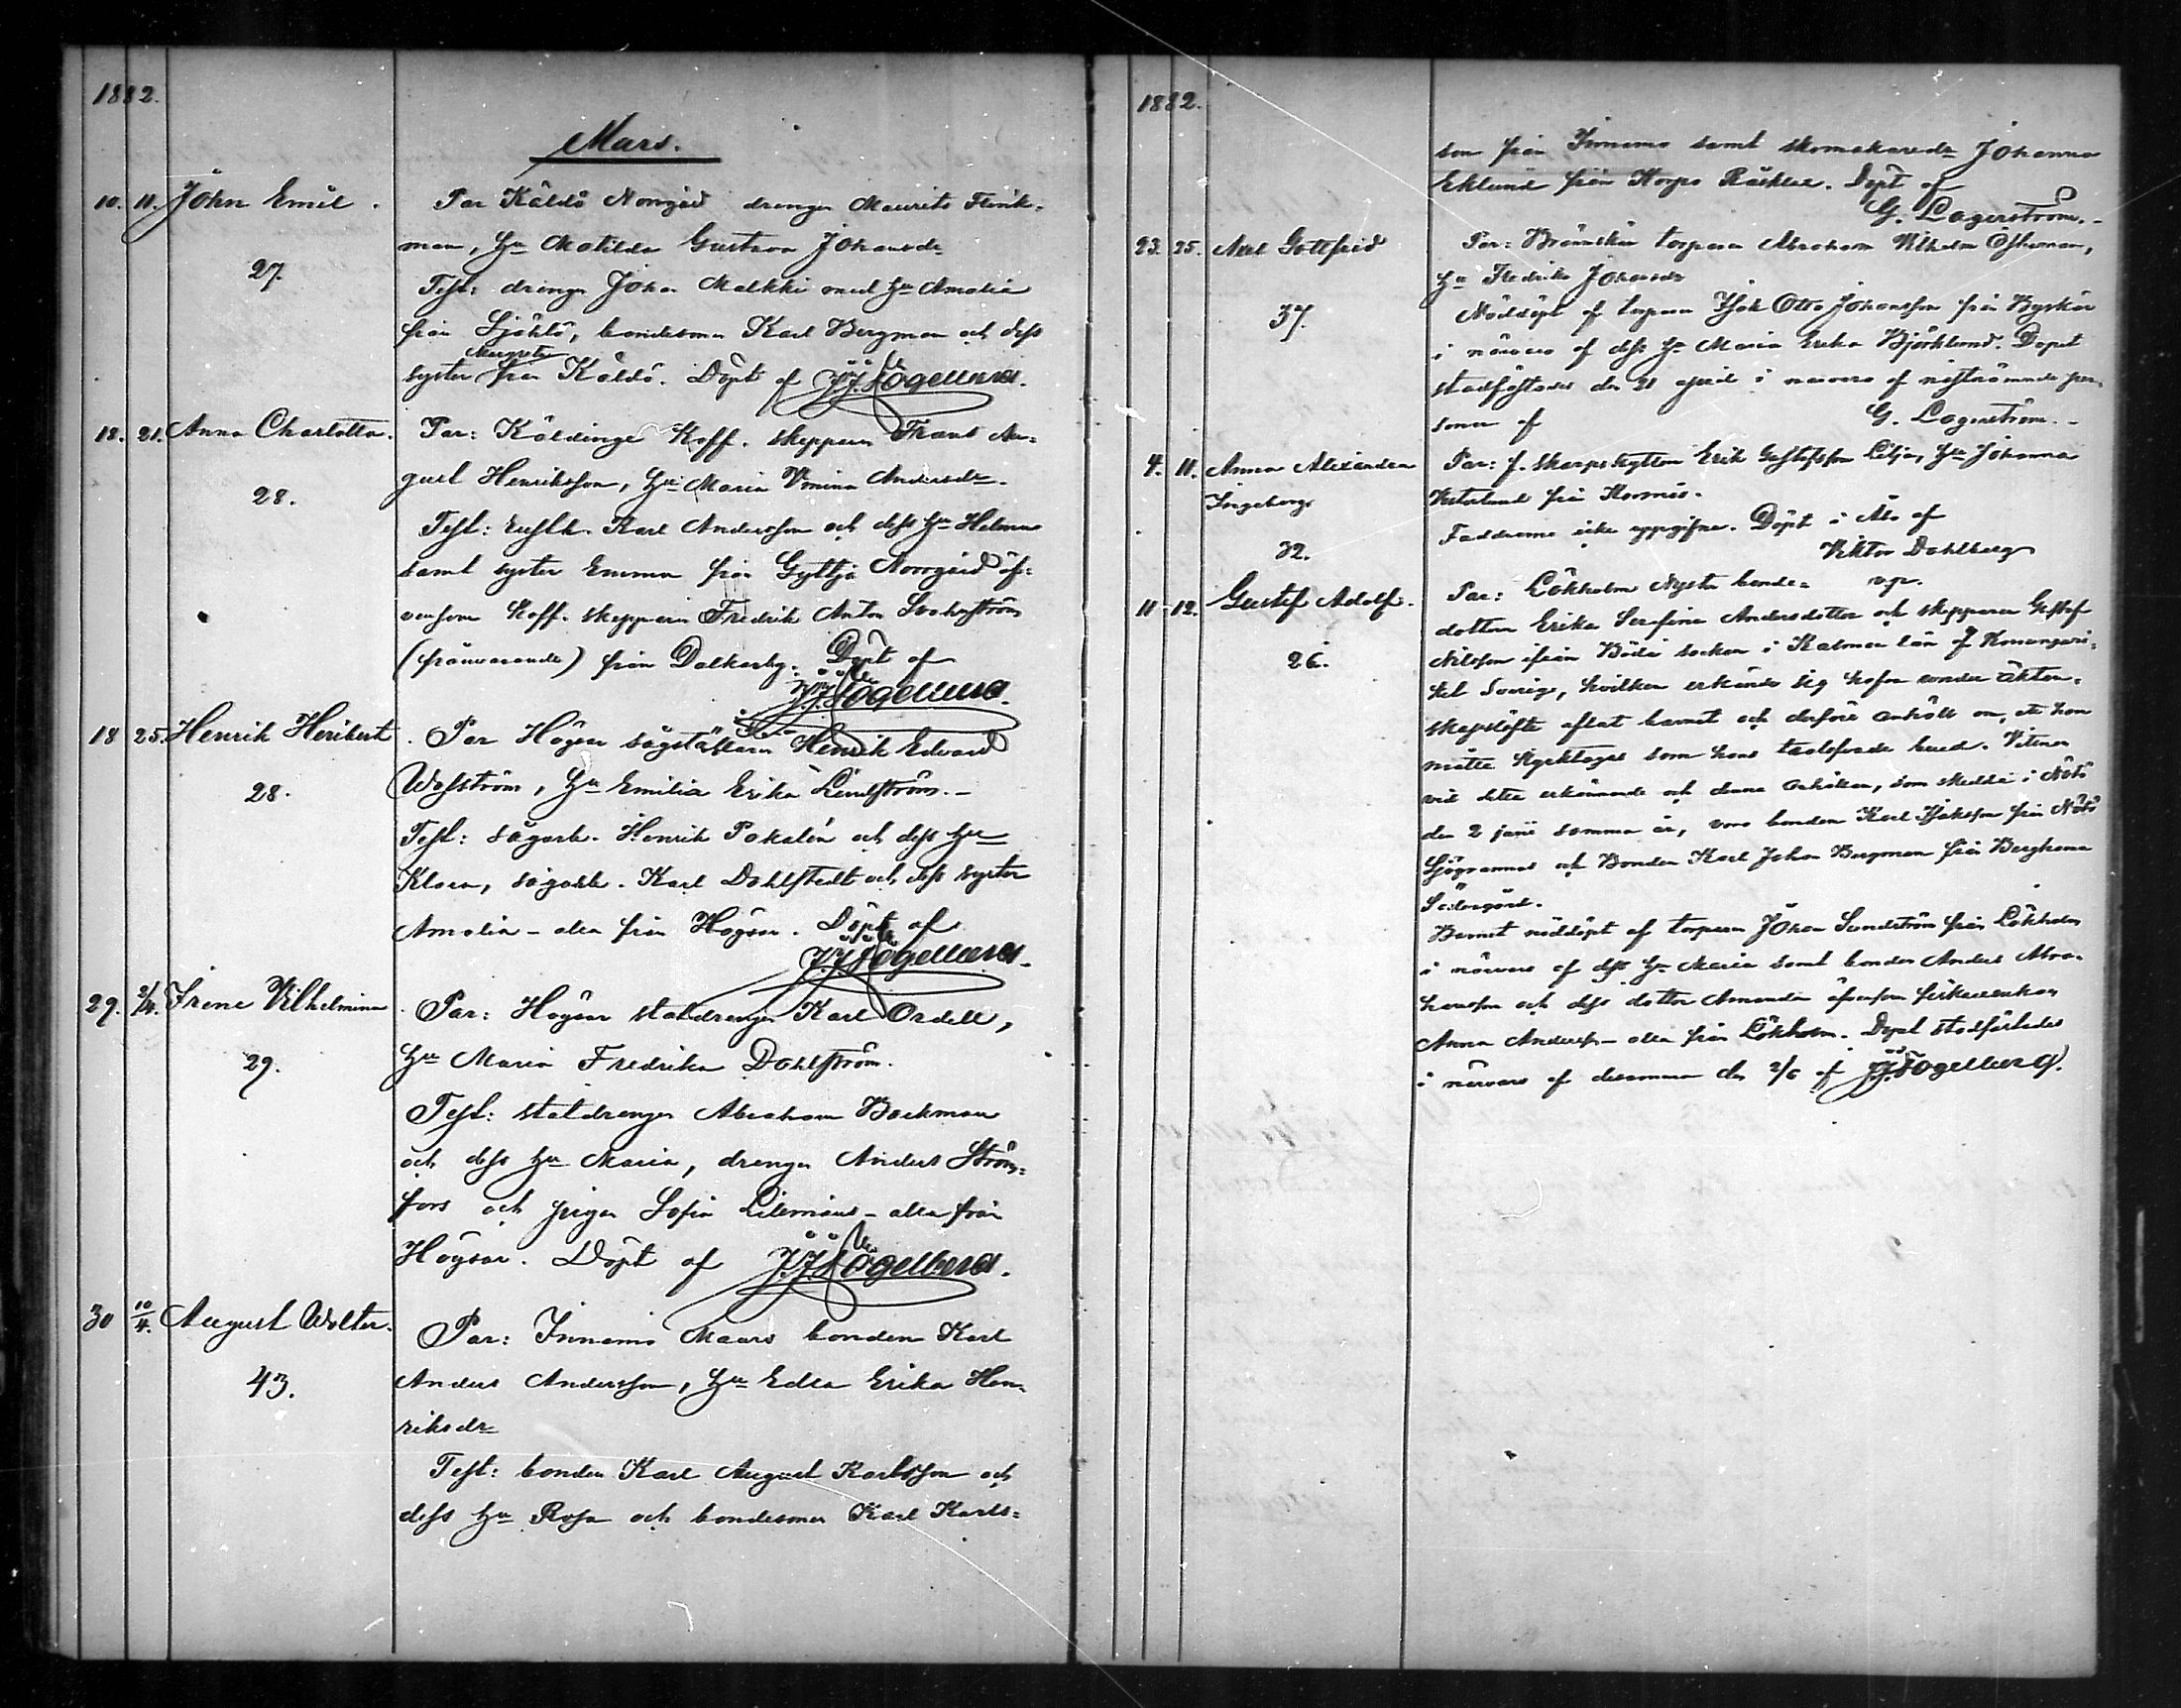 1882.
Mars.
10. 11. John Emil.
27.
Par Käldö Norrgård drengen Maurits Flink-
man, hu Matilda Gustava Johansdr
Test: drengen Johan Malkki med hu Amalia
från Sjählö, bondesonen Karl Bergman och dess
syster Margreta från Käldö. Döpt af J.J. Fogelberg.
18. 21. Anna Charlotta.
28.
Par: Käldinge Koff. skepparen Frans Au-
gust Henriksson, hu Maria Vmina Andersdr.
Test: Karl Andersson och dess hu Helena
samt syster Emma från Gyttja Norrgård äf-
vensom Koff. skepparen Fredrik Anton
(frånvarande) från Dalkarby. Döpt af
J.J. Fogelberg.
18 25. Henrik Heribert
28.
Par Högsar sågställaren Henrik Edvard
Wasström, hu Emilia Erika Lindström.-
Test: sågarb. Henrik Pokalén och dess hu
Klara, sågarb. Karl Dahlstedt och dess syster
Amalia - alla från Högsar. Döpt af
J.J. Fogelberg.
29. 2/4. Irene Vilhelmina
29.
Par: Högsar staldrengen Karl Ordell,
hu Maria Fredrika Dahlström.
Test: staldrengen Abraham Backman
och dess hu Maria, drengen Anders Ström-
fors och pigan Sofia Lilemäns - alla från
Högsar. Döpt af J.J. Fogelberg.
30 10/4. August Wolter.
43.
Par: Innamo Maars bonden Karl
Anders Andersson, hu Edla Erika Hen-
riksdr
Test: bonden Karl August Karlsson och
dess hu Rosa och bondesonen Karl Karls-
1882.
son från Innamo samt skomakaredr Johanna
Eklund från Korpo Rösklax. Döpt af
G. Lagerström.-
23. 25. Axel Gottfrid
37.
Par: Brännskär torparen Abraham Vilhelm Österman,
hu Fredrika Johansdr
Nöddöpt af torparen Isak Otto Johansson från Byskär
i närvaro af dess hu Maria Erika Björklund. Dopet
stadfästades den 21 april i närvaro af nästnämnde per-
soner af G. Lagerström.-
4. 11. Anna Alexandra
Ingeborg
32.
Par: f. skarpskytten Erik Gustafsson Lilja, hu Johanna
Vesterlund från Kornäs.
Faddrarne icke uppgifne. Döpt i Åbo af
Viktor Dahlberg
vp.
11 - 12. Gustaf Adolf.
26.
Par: Lökholm Nysta bonde-
dottren Erika Serafina Andersdotter och skepparen Gustaf
Nilsson ifrån Böda socken i Kalmar län af Konungari-
ket Sverige, hvilken erkände sig hafva under äkten-
skapslöfte aflat barnet och derföre anhöll om, att hon
måtte kyrktagas som hans trolofvade brud. Vittnen
vid detta erkännande och denna anhållan, som skedde i Nötö
den 2 juni samma år, voro bonden Karl Isaksson från Nötö
Sjögrannas och Bonden Karl Johan Bergman från Berghamn
Södergård.
Barnet nöddöpt af torparen Johan Sundström från Lökholm
i närvaro af dess hu Maria samt bonden Anders Abra-
hamsson och dess dotter Amanda äfvensom fiskareenkan
Anna Andersdr - alla från Lökholm. Dopet stadfästades
i närvaro af desamma den 2/6 af J.J. Fogelberg.